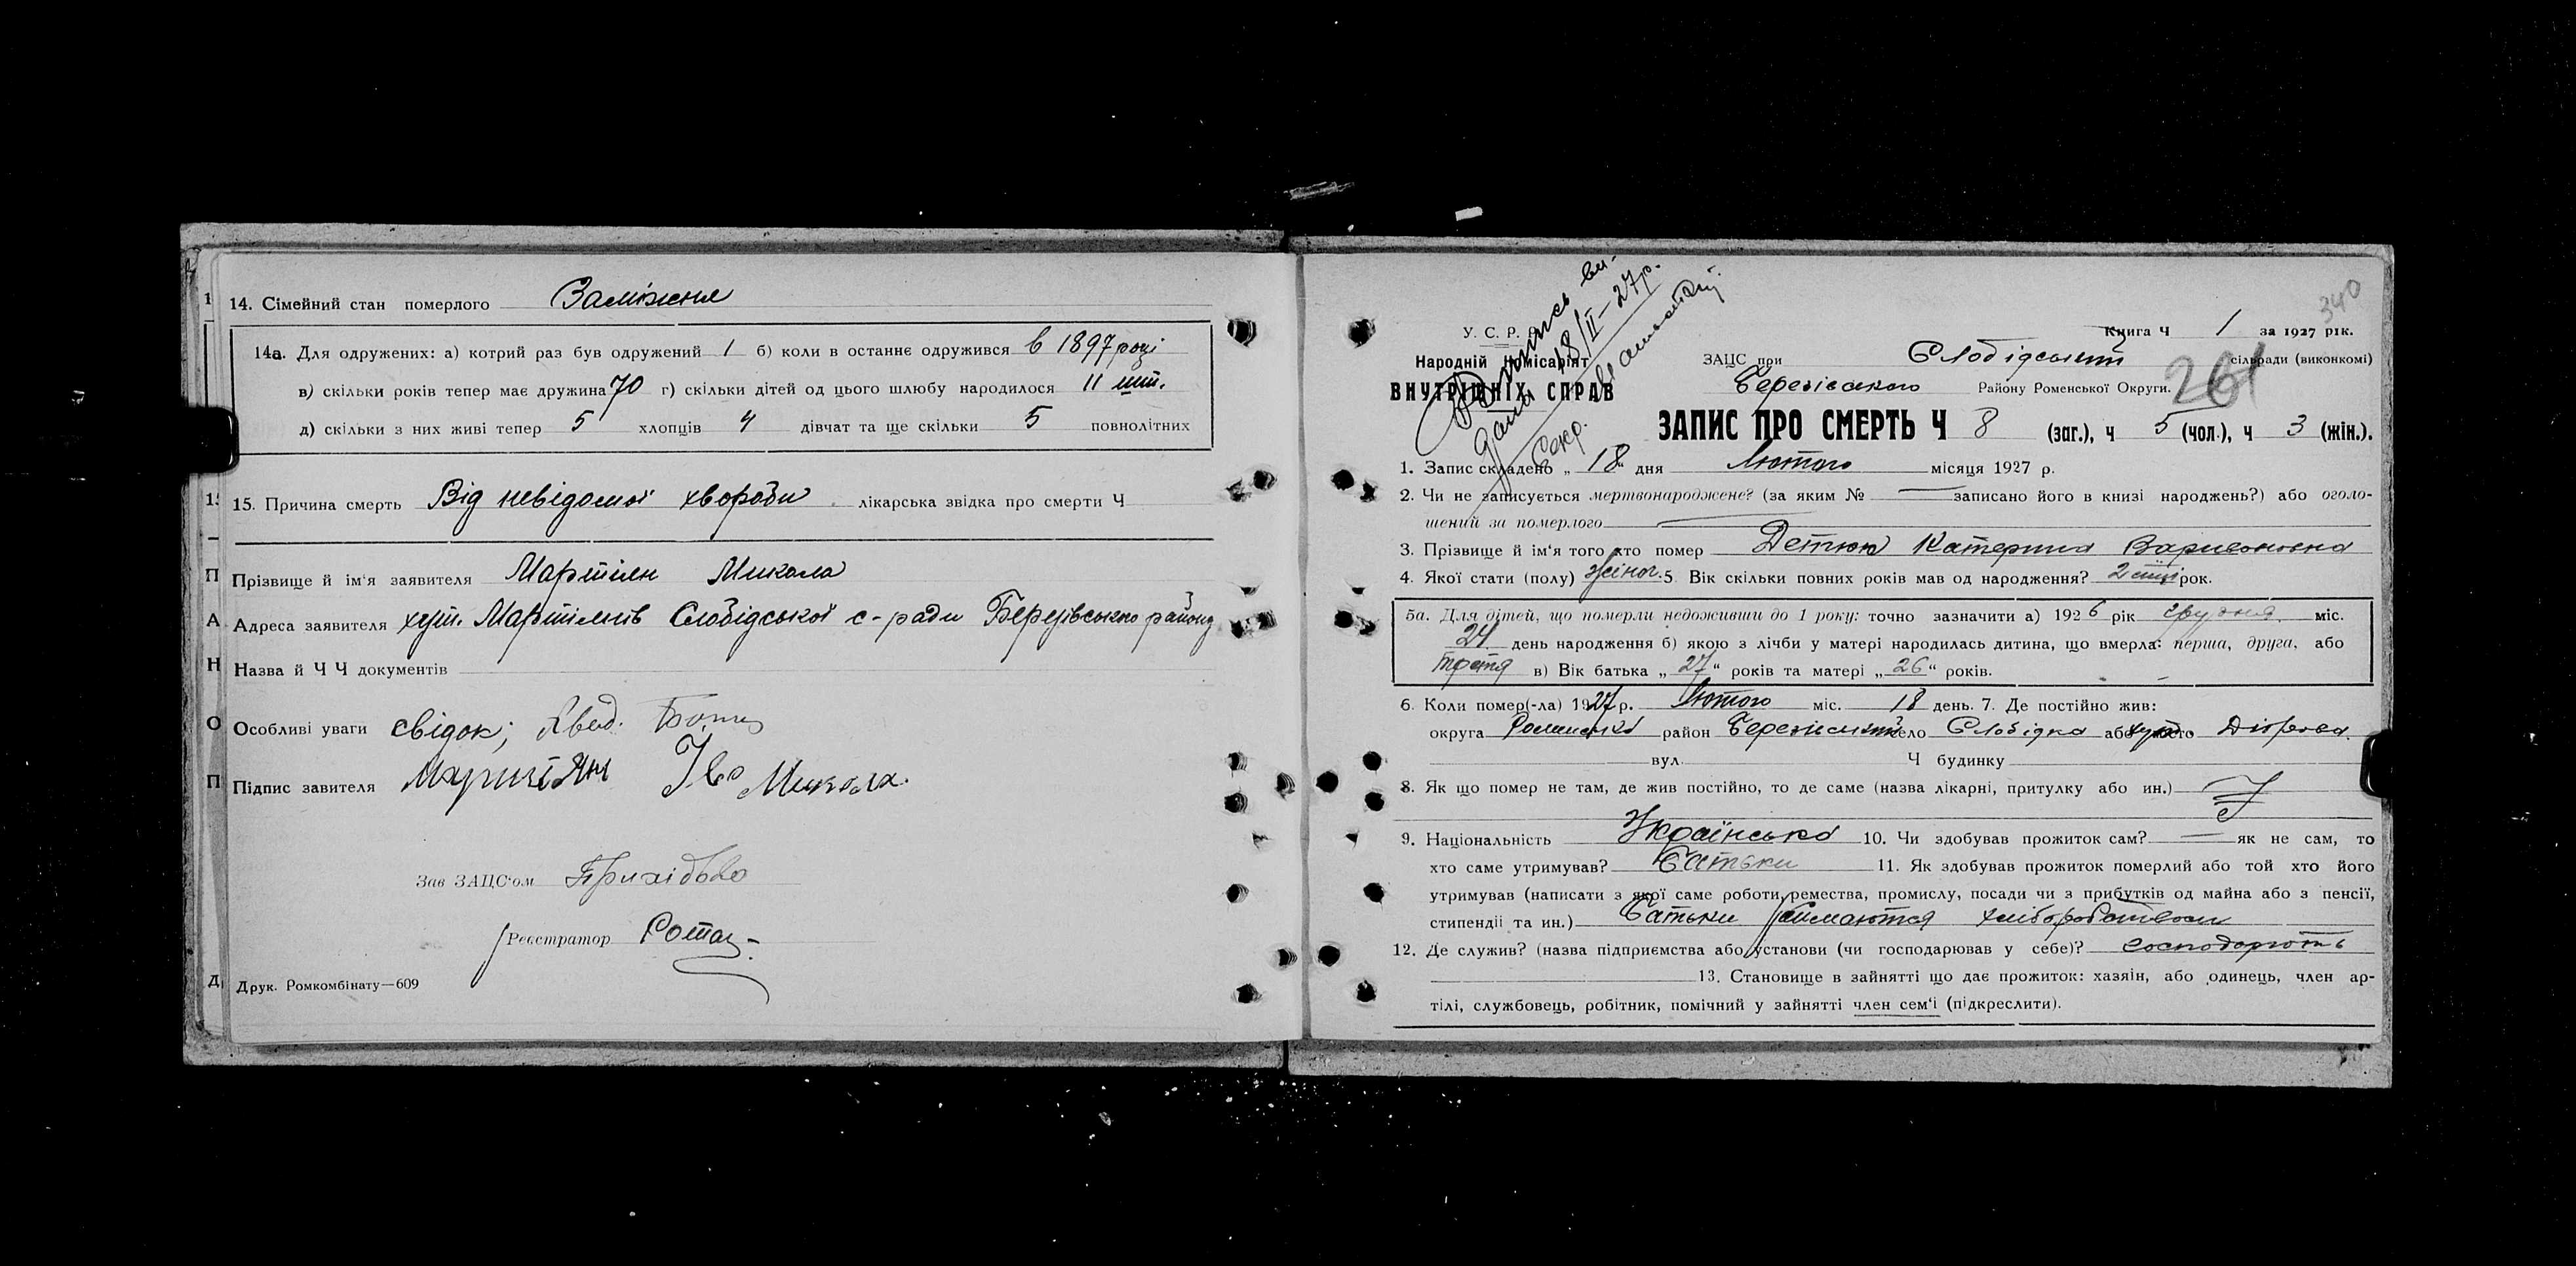 14. Сімейний стан померлого Заміжня
14а. Для одружених: а) котрий раз був одружений 1 б) коли в останнє одружився в 1897 році
в) скільки років тепер має дружина 70 г) скільки дітей од цього шлюбу народилося 11 шт.
д) скільки з них живі тепер 5 хлопців 4 дівчат та ще скільки 5 повнолітних
15. Причина смерть Від невідомої хвороби лікарська звідка про смерти Ч
Прізвище й ім'я заявителя Мартіян Микола
Адреса заявителя хут. Мартіянів Слобідської с-ради Березівського району
Назва й Ч Ч документів
Особливі уваги свідок;
Підпис завителя Мартіян Микола.
Зав ЗАЦС'ом
Реєстратор
Друк. Ромкомбінату—609
340
У. С. Р. Р.
Книга Ч 1 за 1927 рік.
Народній Комісаріят
ВНУТРІШНІХ СПРАВ
ЗАЦС при Слобідський сільради (виконкомі)
Березівського Району Роменської Округи.
261
18/II—27р.
Секр.
ЗАПИС ПРО СМЕРТЬ Ч 8 (заг.), ч 5 (чол.), ч 3 (жін.).
1. Запис складено „ 18 " дня Лютого місяця 1927 р.
2. Чи не записується мертвонароджене? (за яким № записано його в книзі народжень?) або оголо-
шений за померлого
3. Прізвище й ім'я того хто помер Катерина
4. Якої стати (полу) жіноч. 5. Вік скільки повних років мав од народження? 2 рок.
5а. Для дітей, що померли недоживши до 1 року: точно зазначити а) 1926 рік грудня міс.
24 день народження б) якою з лічби у матері народилась дитина, що вмерла: перша, друга, або
третя в) Вік батька „ 27 " років та матері „ 26 " років.
6. Коли помер(-ла) 1927 р. Лютого міс. 18 день. 7. Де постійно жив:
округа Роменська район Березівський село Слобідка або місто Діброва.
вул. Ч будинку
8. Як що помер не там, де жив постійно, то де саме (назва лікарні, притулку або ин.)
9. Національність Українська 10. Чи здобував прожиток сам? — як не сам, то
хто саме утримував? Батьки 11. Як здобував прожиток померлий або той хто його
утримував (написати з якої саме роботи, ремества, промислу, посади чи з прибутків од майна або з пенсії,
стипендії та ин.) Батьки займаются хліборобством
12. Де служив? (назва підприємства або установи (чи господарював у себе)? господарють
13. Становище в зайнятті що дає прожиток: хазяін, або одинець, член ар-
тілі, службовець, робітник, помічний у зайнятті член сем'ї (підкреслити).